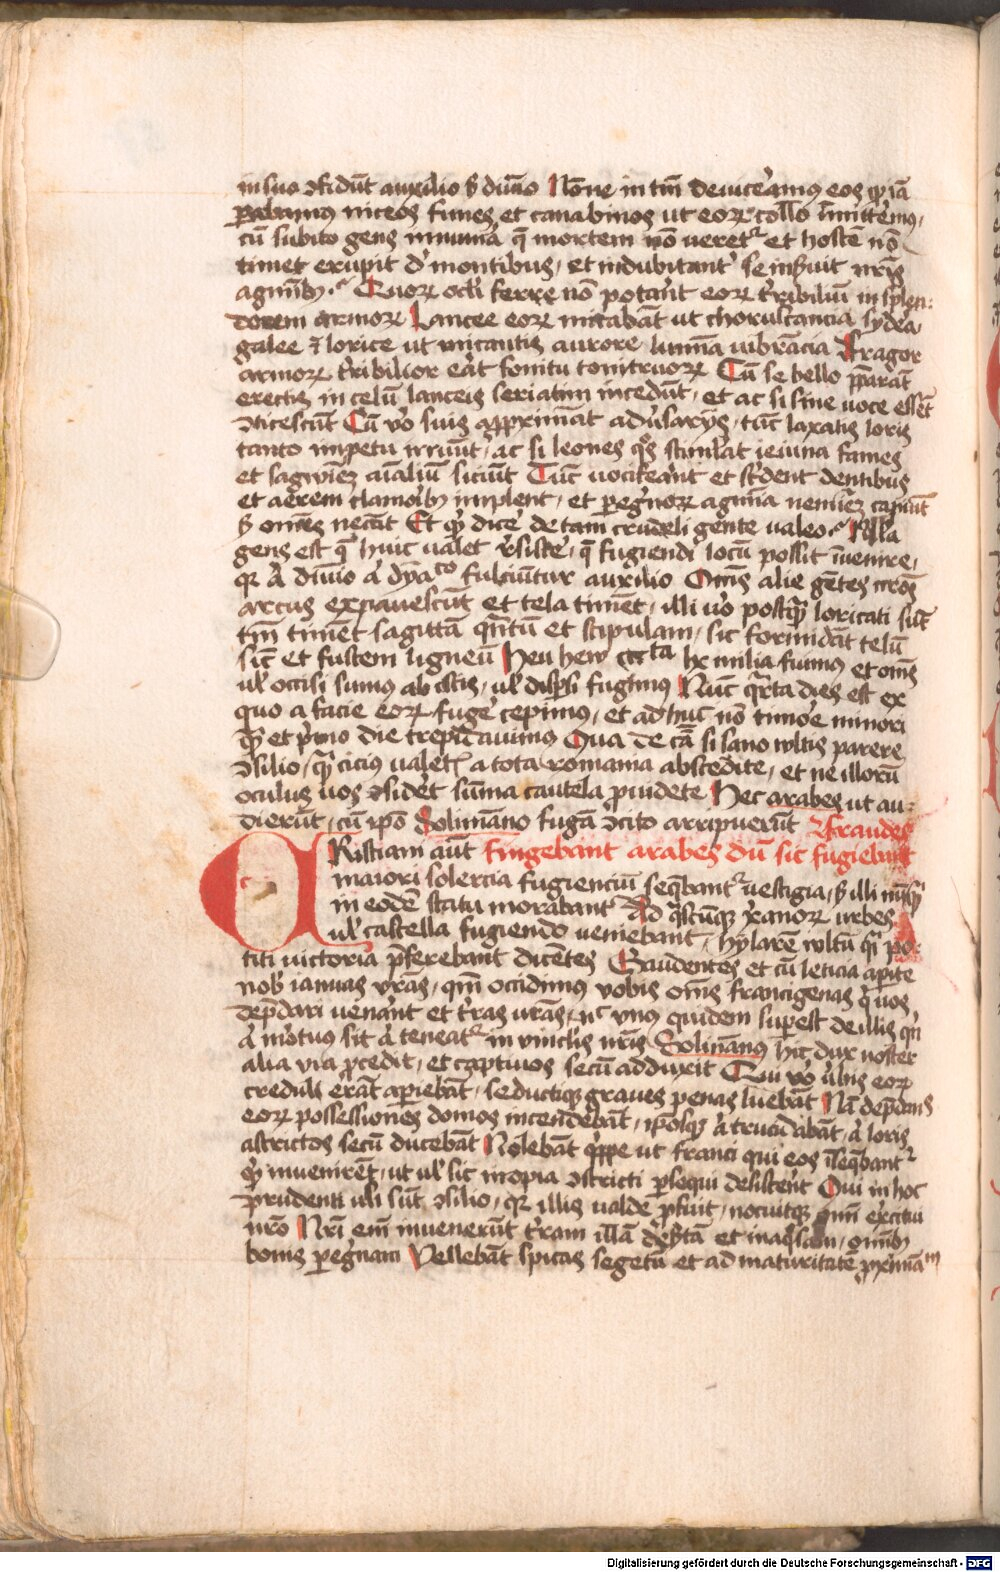 in suo ɔfidūt auxilio ꝫ diuīo Nōne in tm̄ deuicer̄amꝰ eos qꝫ iā
parabamꝰ niceos funes et canabinos ut eoꝝ collo īmittem̄ꝰ
cū subito gens innum̄a q̄ mortem nō ueretᷣ et hostē nō
timet erupit d̄ montibus, et indubitant̄ se inẜuit nr̄is
agmībꝫ. Quoꝝ ocl̓i ferre nō potant̄ eoꝝ tr̄ibiliū in splen:
dorem armoꝝ Lancee eoꝝ micabāt ut choruscancia sydera
galee ⁊ lorice ut micantis aurore lumīa uibrācia Fragor
armoꝝ tr̄ibilior erāt sonitu tonitruoꝝ Cū se bello ꝑparāt
erectis in celū lanceis seriatim incedūt, et ac si sine uoce essēt
ɔticescūt Cū vo᷎ suis aꝓpximāt adu᷎sarijs, tūc laxatis loris
tanto impetu irruūt, ac si leones qᷣs stimlāt ieiuna fames
et sagwīeꝫ aīaliū siciūt Tūc uocifeānt et st᷎dent dentibus
et aerem clamoribꝫ implent, et peg᷎noꝝ agmīa neminē capiūt
ꝫ omēs necāt Et qͥd dicē de tam crudeli gente ualeo. Nulla
gens est q̄ huic ualet r᷎sistē, q̄ fugiendi locū possit īuenire,
qꝛ ā diuīo ā dyaᶜᵒ fulciuntur auxilio Oēs alie gētes nr̄os
arcus expauescūt et tela timēt, illi uo᷎ postqᷓ loricati sūt
tm̄ timēt sagittā qn̄tū et stipulam, sic formidāt telū
sic̄ et fustem ligneū Heu hew ccc ta lx milia fuimꝰ et oēs
ul̓ occisi sumus ab istis, ul̓ disꝑsi fugimꝰ Nūc qᷓrta dies est ex
quo a facie eoꝝ fugē cepimus, et adhuc nō timoē minori
qᷓ et pͥmo die trepidauimus Qua de cā si sano wltis parere
ɔsilio, qᷓ cicius ualetꝭ a tota romania abscedite, et ne illorū
oculus uos ɔsidet sūma cautela ꝓuidete Hec arabes ut au:
dierūt, cū ip̄o Solimāno fugā ɔcito arripuerūt Fraudes
CRistiani aūt fingebant arabes dū sic fugiebant
maiori solercia fugienciū seqͥbantᷣ uestigia, ꝫ illi nūqᷓ
in eodē statu morabant᷎ Ad qͣscūqꝫ xp̄anoꝝ urbes
ul̓ castella fugiendo ueniebant, hylarē wltū qͣi po:
titi uictoria p̄ferebant dicētes Gaudentes et cū leticia aperite
nob̄ ianuas vr̄as, qm̄ occidimus vobis om̄s francigenas qͥ uos
dep̄dari uenānt et tr̄as ur̄as, nᶜ vnus quidem supest de illis qn̄
ā mortuus sit ā teneatᷣ in vinclis nr̄is Solimānus hic dux noster
alia via ꝓcedit, et captiuos secū adduxit Qui vo᷎ v᷎bis eoꝝ
creduli erāt apiebāt, seductiqꝫ graues penas luebāt Nā dep̄dātis
eoꝝ possessiones domos incendebāt, ip̄osqꝫ ā trucidabāt, ā loris
astrictos secū ducebāt Nolebāt qͥppe ut franci qui eos īseqͥbantᷣ
qͥd inuenirēt, ut ul̓ sic inopia ɔstricti psequi desistent̄ Qui in hoc
prudenti usi sūt ɔsilio, qꝛ illis ualde ꝓfuit, nocuitqꝫ omī exercitui
nr̄o Nr̄i em̄ inuenerūt tr̄am illā des᷎tā et inaqͣsam, omībꝫ
bonis pegrinati Vellebāt spicas segetū et ad maturitatē ꝓximāᵐ